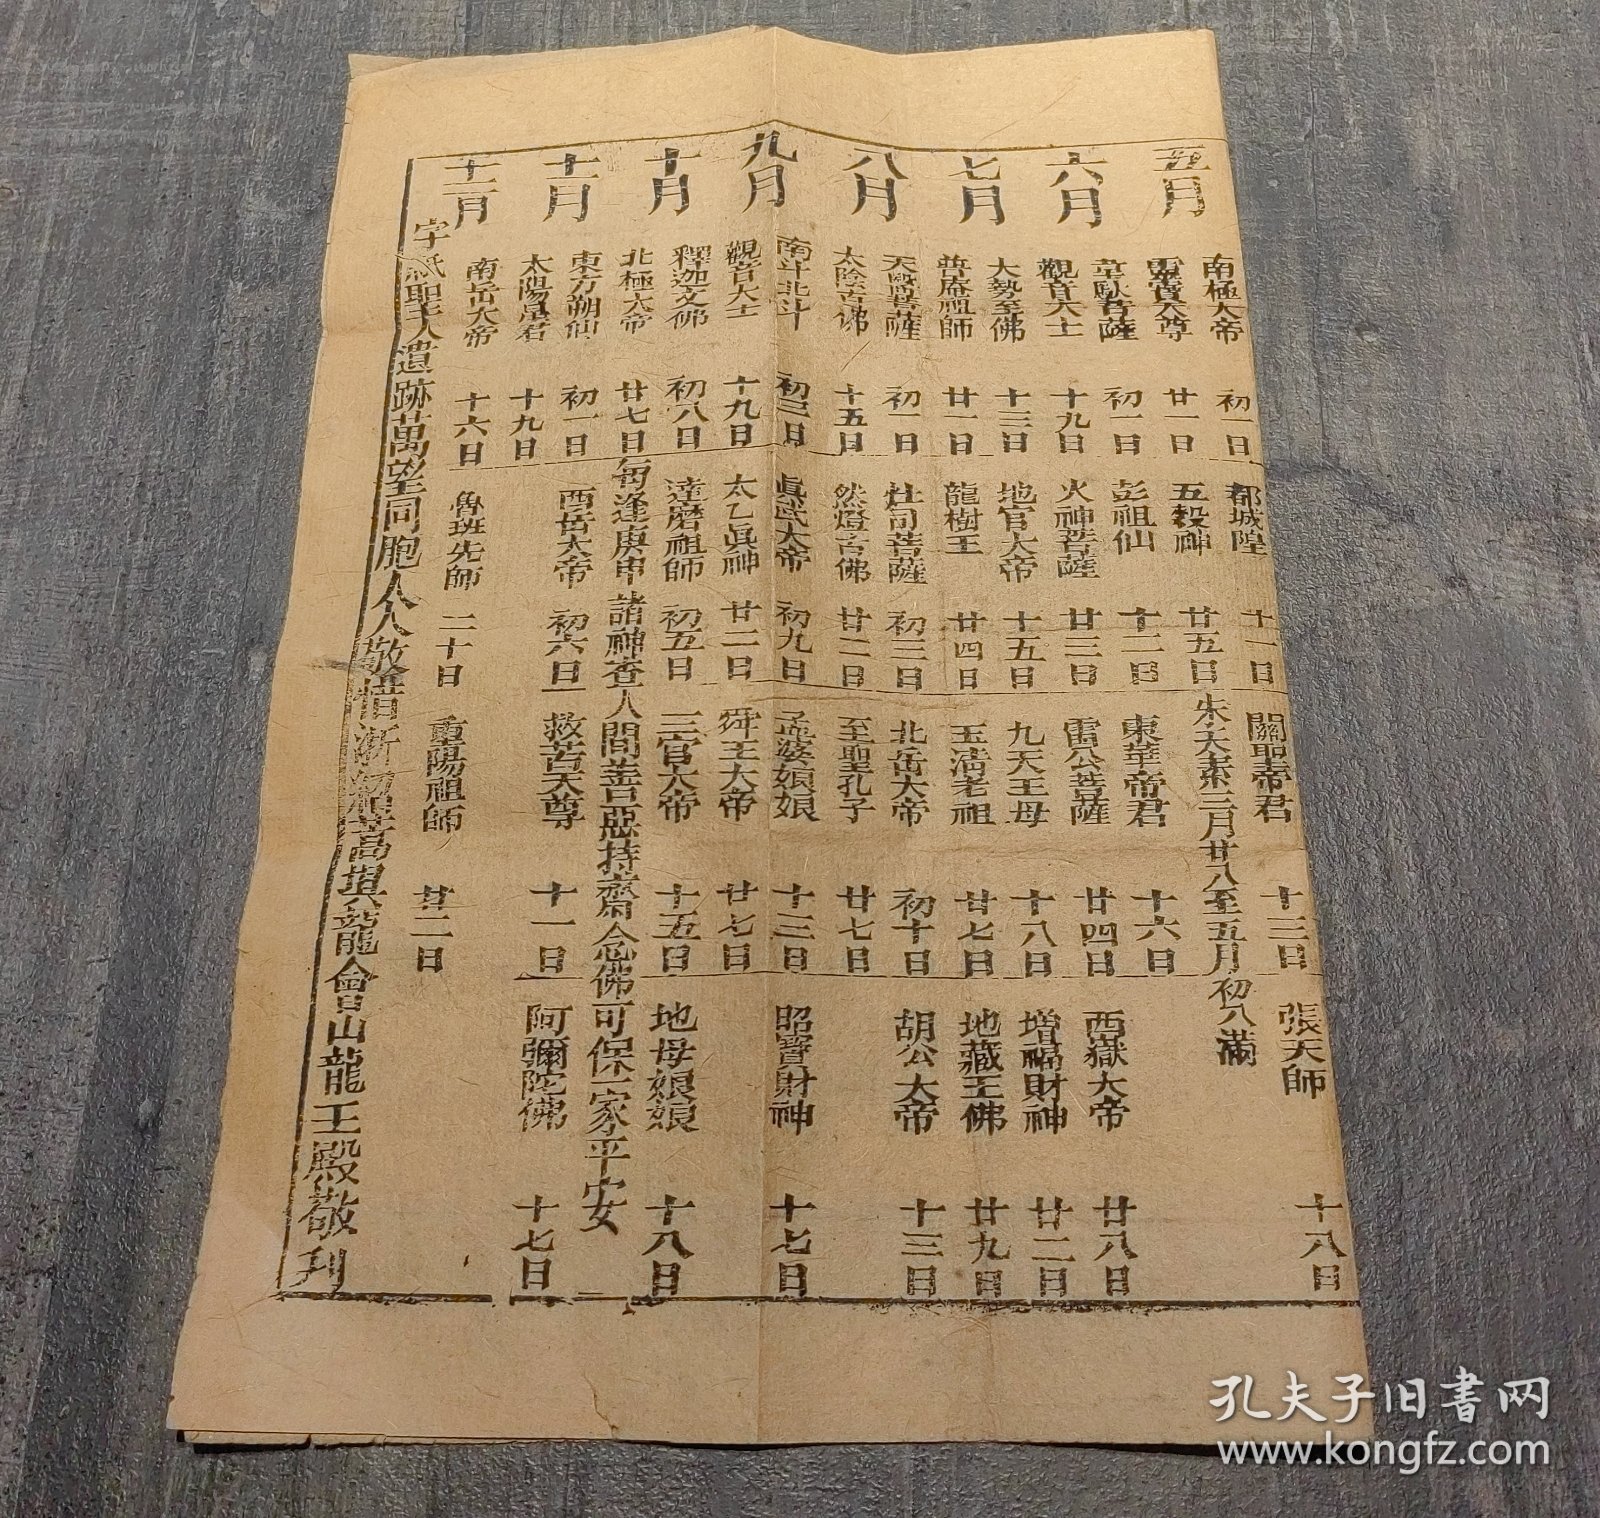 五月
南極大帝 初一日 都城隍 十一日 關聖帝君 十三日 張天師 十八日
靈寶天尊 廿一日 五穀神 廿五日 朱大素三月廿八至五月初八滿
六月
韋馱菩薩 初一日 彭祖仙 十二日 東華帝君 十六日
觀音大士 十九日 火神菩薩 廿三日 雷公菩薩 廿四日 西嶽大帝 廿八日
七月
大勢至佛 十三日 地官大帝 十五日 九天王母 十八日 增福財神 廿二日
普庵祖師 廿一日 龍樹王 廿四日 玉清老祖 廿七日 地藏王佛 廿九日
八月
天醫菩薩 初一日 灶司菩薩 初三日 北岳大帝 初十日 胡公大帝 十三日
太陰古佛 十五日 然燈古佛 廿二日 至聖孔子 廿七日
九月
南斗北斗 初三日 真武大帝 初九日 孟婆娘娘 十三日 昭寶財神 十七日
觀音大士 十九日 太乙真神 廿二日 舜王大帝 廿七日
十月
釋迦文佛 初八日 達磨祖師 初五日 三官大帝 十五日 地母娘娘 十八日
北極大帝 廿七日 每逢庚申諸神查人間善惡持齋念佛可保一家平安
十一月
東方朔仙 初一日 西岳大帝 初六日 救苦天尊 十一日 阿彌陀佛 十七日
太陽星君 十九日
十二月
南岳大帝 十六日 魯班先師 二十日 重陽祖師 廿二日
字紙聖人遺跡萬望同胞人人敬惜浙紹嵩壩站龍會山龍王殿敬刊
孔夫子旧書网
www.kongfz.com